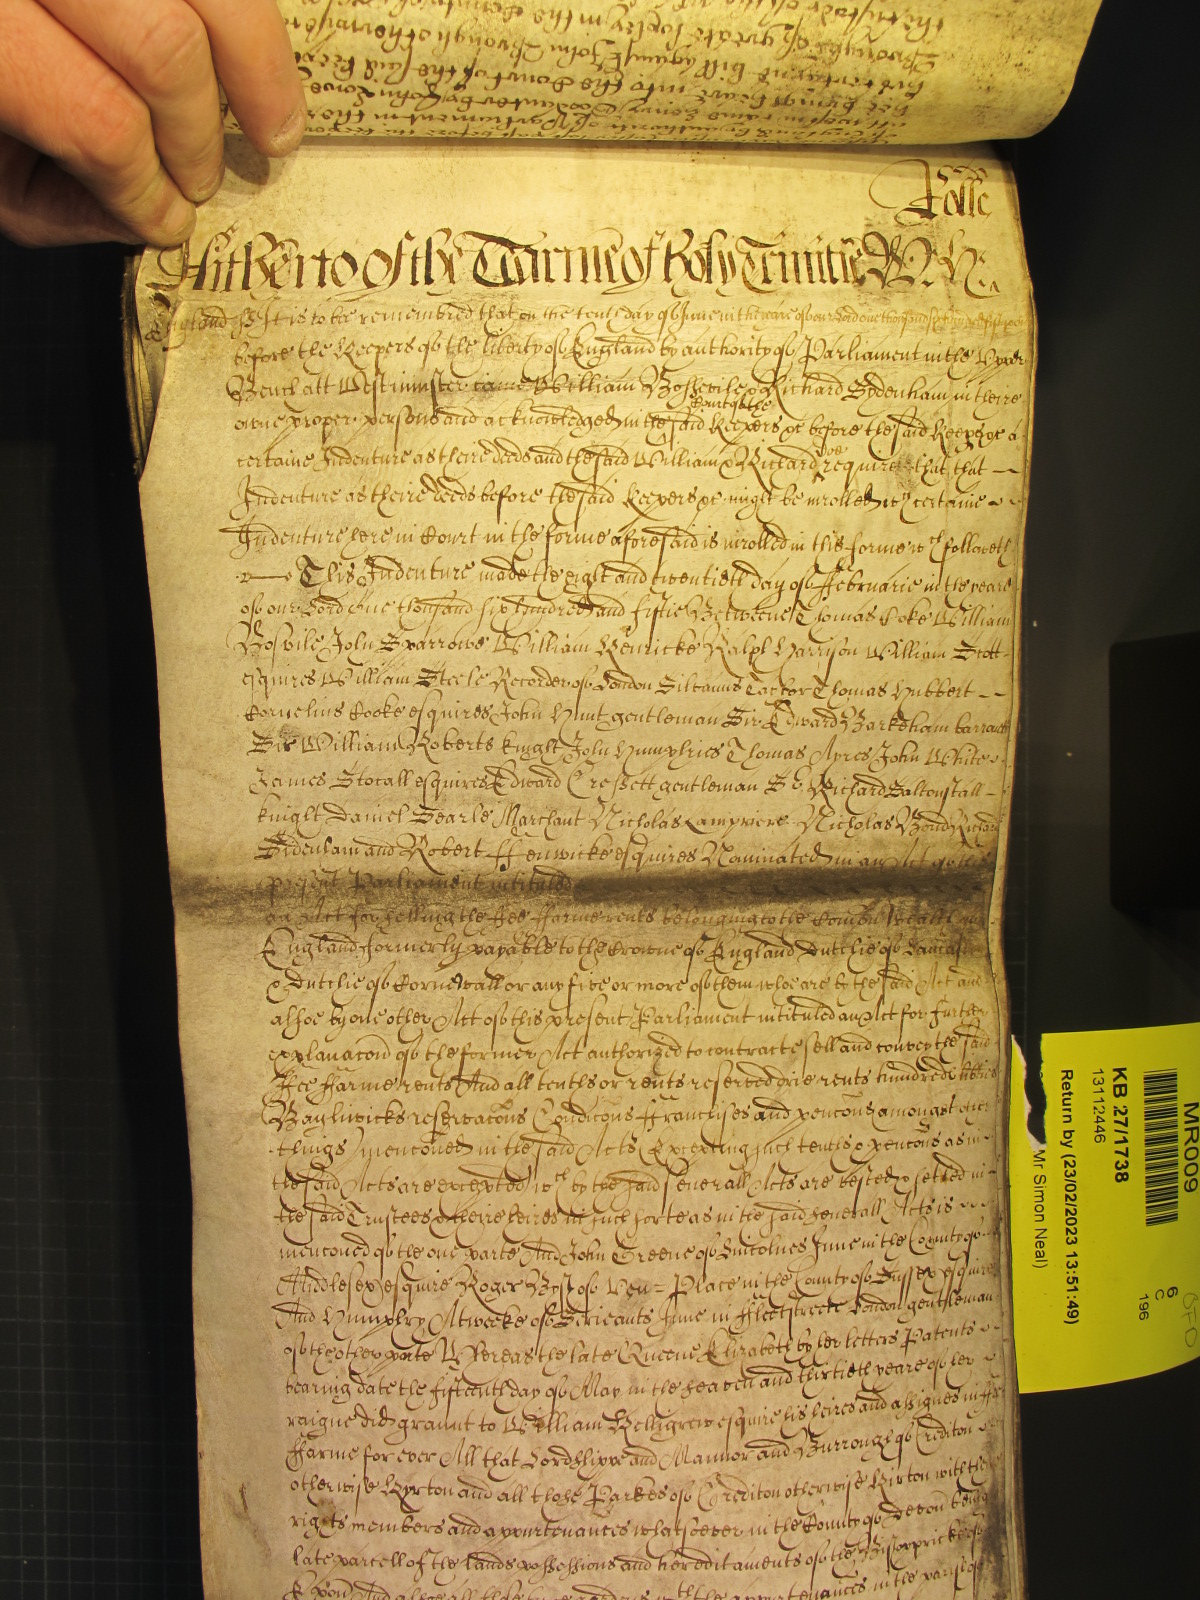 Rolle
Hitherto of the Tearme of Holy Trinitie
England ss It is to bee remembred that on the tenth day of June in the yeare of our Lord one thousand six hundred
before the Keepers of the liberty of England by authority of Parliament in the Upper
Bench att Westminster came William Bossevile & Richard Sydenham in theire
Court of the
owne proper persons and acknowledged in the said Keepers &c before the said Keepers &c a
certaine Indenture as theire deeds and the said William & Richard doe require that that
Indenture as theire deeds before the said Keepers &c might be inrolled wch certaine
Indenture here in Court in the forme aforesaid is inrolled in this forme wch followeth
This Indenture made the eight and twentieth day of Februarie in the yeare
of our Lord One thousand six hundred and fiftie Betweene Thomas Coke William
Bosvile John Sparrowe William Kenricke Ralph Harrison William Scott
esquires William Steele Recorder of London Silvanus Taylor Thomas Hubbert
Cornelius Cooke esquires John Hunt gentleman Sir Edward Barkeham barronett
Sir William Roberts knight John Humphries Thomas Ayres John White
James Stocall esquires Edward Cressett gentleman Sr Richard Saltonstall
knight Daniel Searle Marchant Nicholas Lampriere Nicholas Bond Richard
Sidenham and Robert Ffenwicke esquires Nominated in an Act of this
present Parliament intituled
an Act for selling the Fee Farme rents belonging to the Comon Wealth of
England formerly payable to the Crowne of England Dutchie of Lancaster
& Dutchie of Cornewall or any five or more of them whoe are by the said Act and
alsoe by one other Act of this present Parliament intituled an Act for further
explanacond of the former Act authorized to contracte sell and convey the said
Fee Farme rents And all tenths or rents reserved drie rents hundreds liberties
Bayliwicks reservacons Condicons Franchises and pencons amongst other
things mencioned in the said Acts Excepting such tenths & pencons as in
the said Acts are excepted wch by the said severall Acts are vested & setled in
the said Trustees & theire heires in such sorte as in the said severall Acts is
mencioned of the one parte And John Greene of Lincolnes Inne in the County of
Middlesex esquire Roger Bysh of Fen-Place in the County of Sussex esquire
And Humphry Atweeke of Serieants Inne in Fleetstreete London gentleman
of the other parte Whereas the late Queene Elizabeth by her letters Patents
bearing date the fifteenth day of May in the seaven and thirtieth yeare of her
raigne did graunt to William Killigrew esquire his heires and assignes in Fee
Farme for ever All that Lordshippe and Mannor and Burrough of Crediton
otherwise Kyrton and all those Parkes of Crediton otherwise Kirton with the
rights members and appurtenances whatsoever in the County of Devon being
late parcell of the lands possessions and hereditaments of the Bishopricke of
Exon And alsoe all those the appurtenances in the parish of
MR009
KB 27/1738
13112446
Return by (23/02/2023 13:51:49)
Mr Simon Neal)
6
C
196